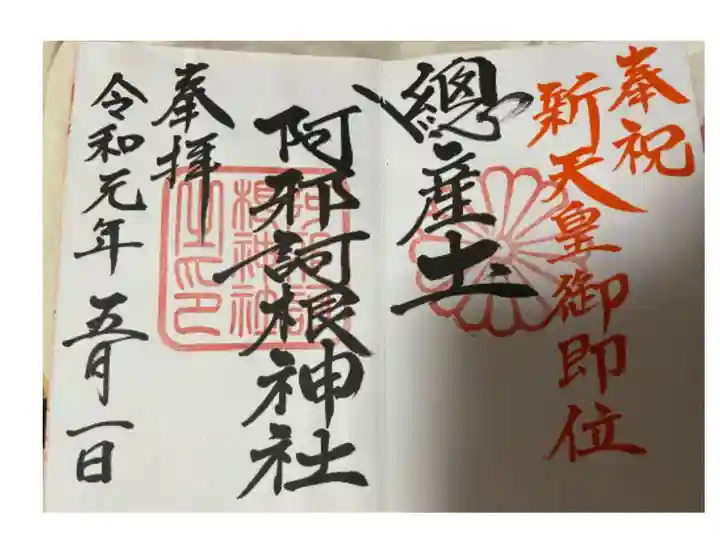 奉祝
新天皇御即位
總産土
阿邪訶根神社
奉拝
令和元年 五月一日